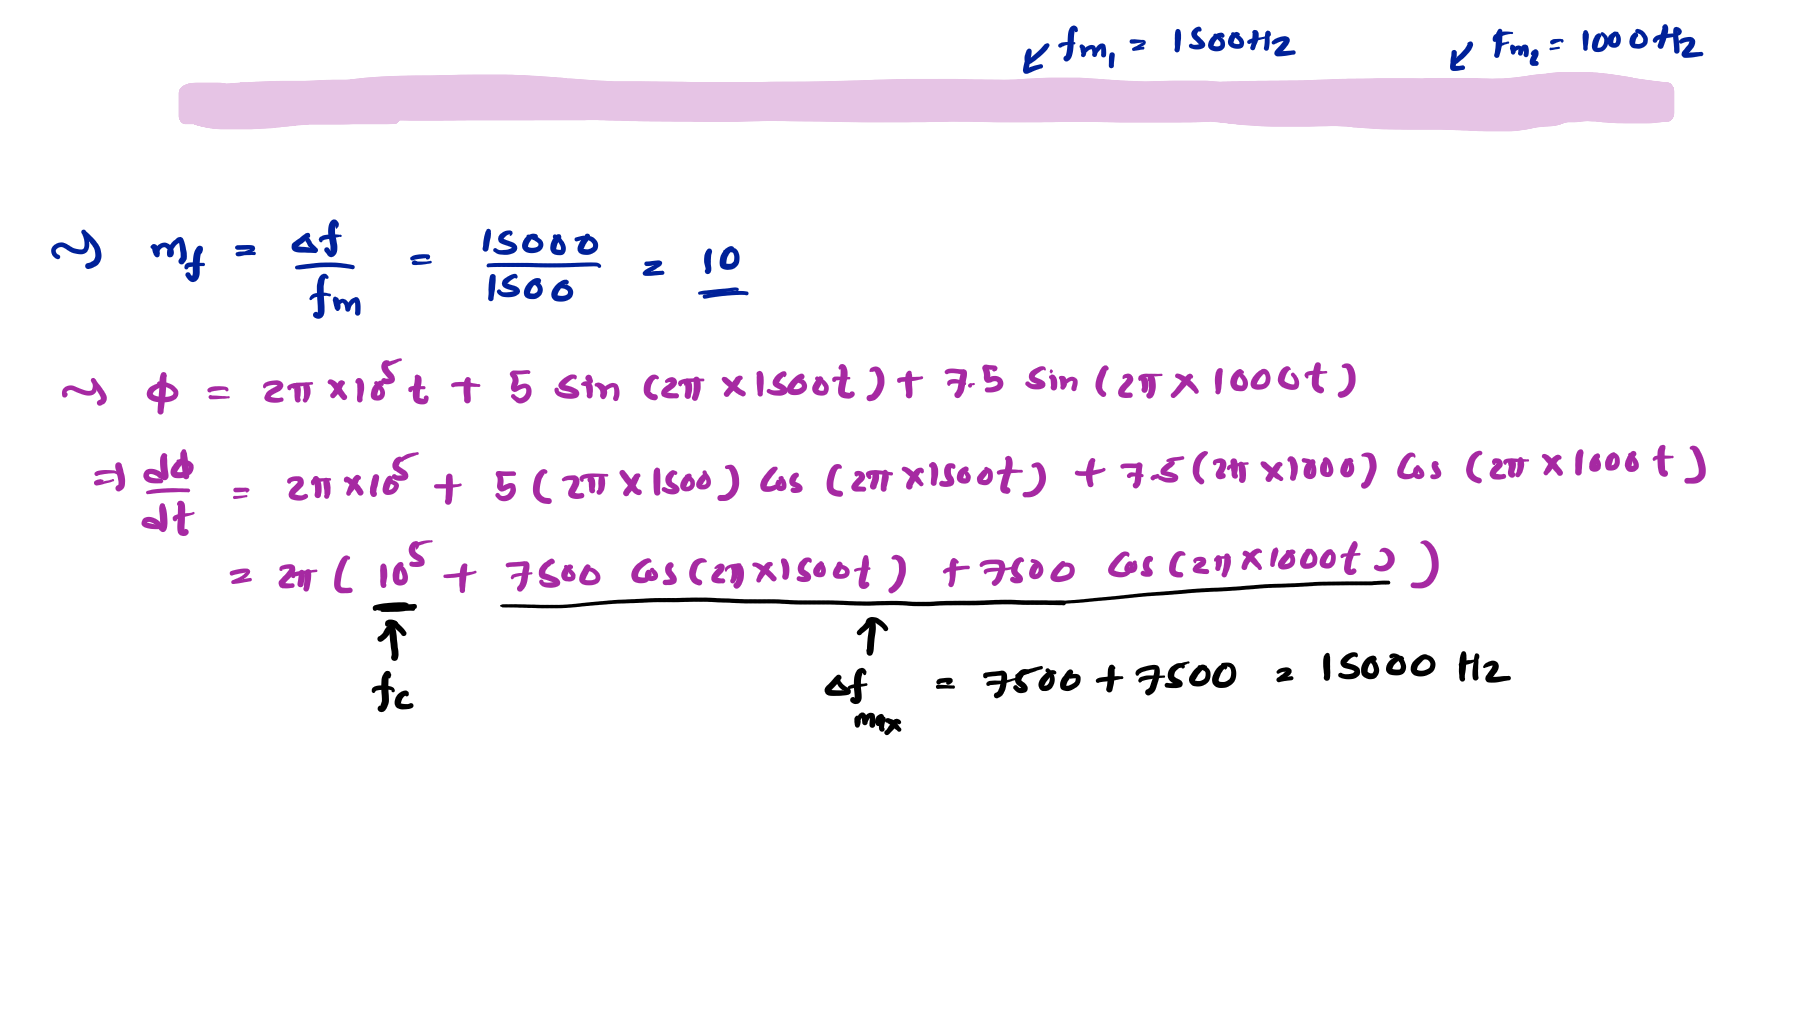 ↙ fm₁ = 1500Hz ↙ Fm₂ = 1000Hz
~> mf = Δf/fm = 15000/1500 = 10
~> ϕ = 2π×10⁵t + 5 sin (2π×1500t) + 7.5 sin (2π×1000t)
=> dϕ/dt = 2π×10⁵ + 5(2π×1500) Cos (2π×1500t) + 7.5(2π×1000) Cos (2π×1000t)
= 2π( 10⁵ + 7500 Cos(2π×1500t) + 7500 Cos (2π×1000t) )
↑ ↑
fc Δf max = 7500+7500 = 15000 Hz